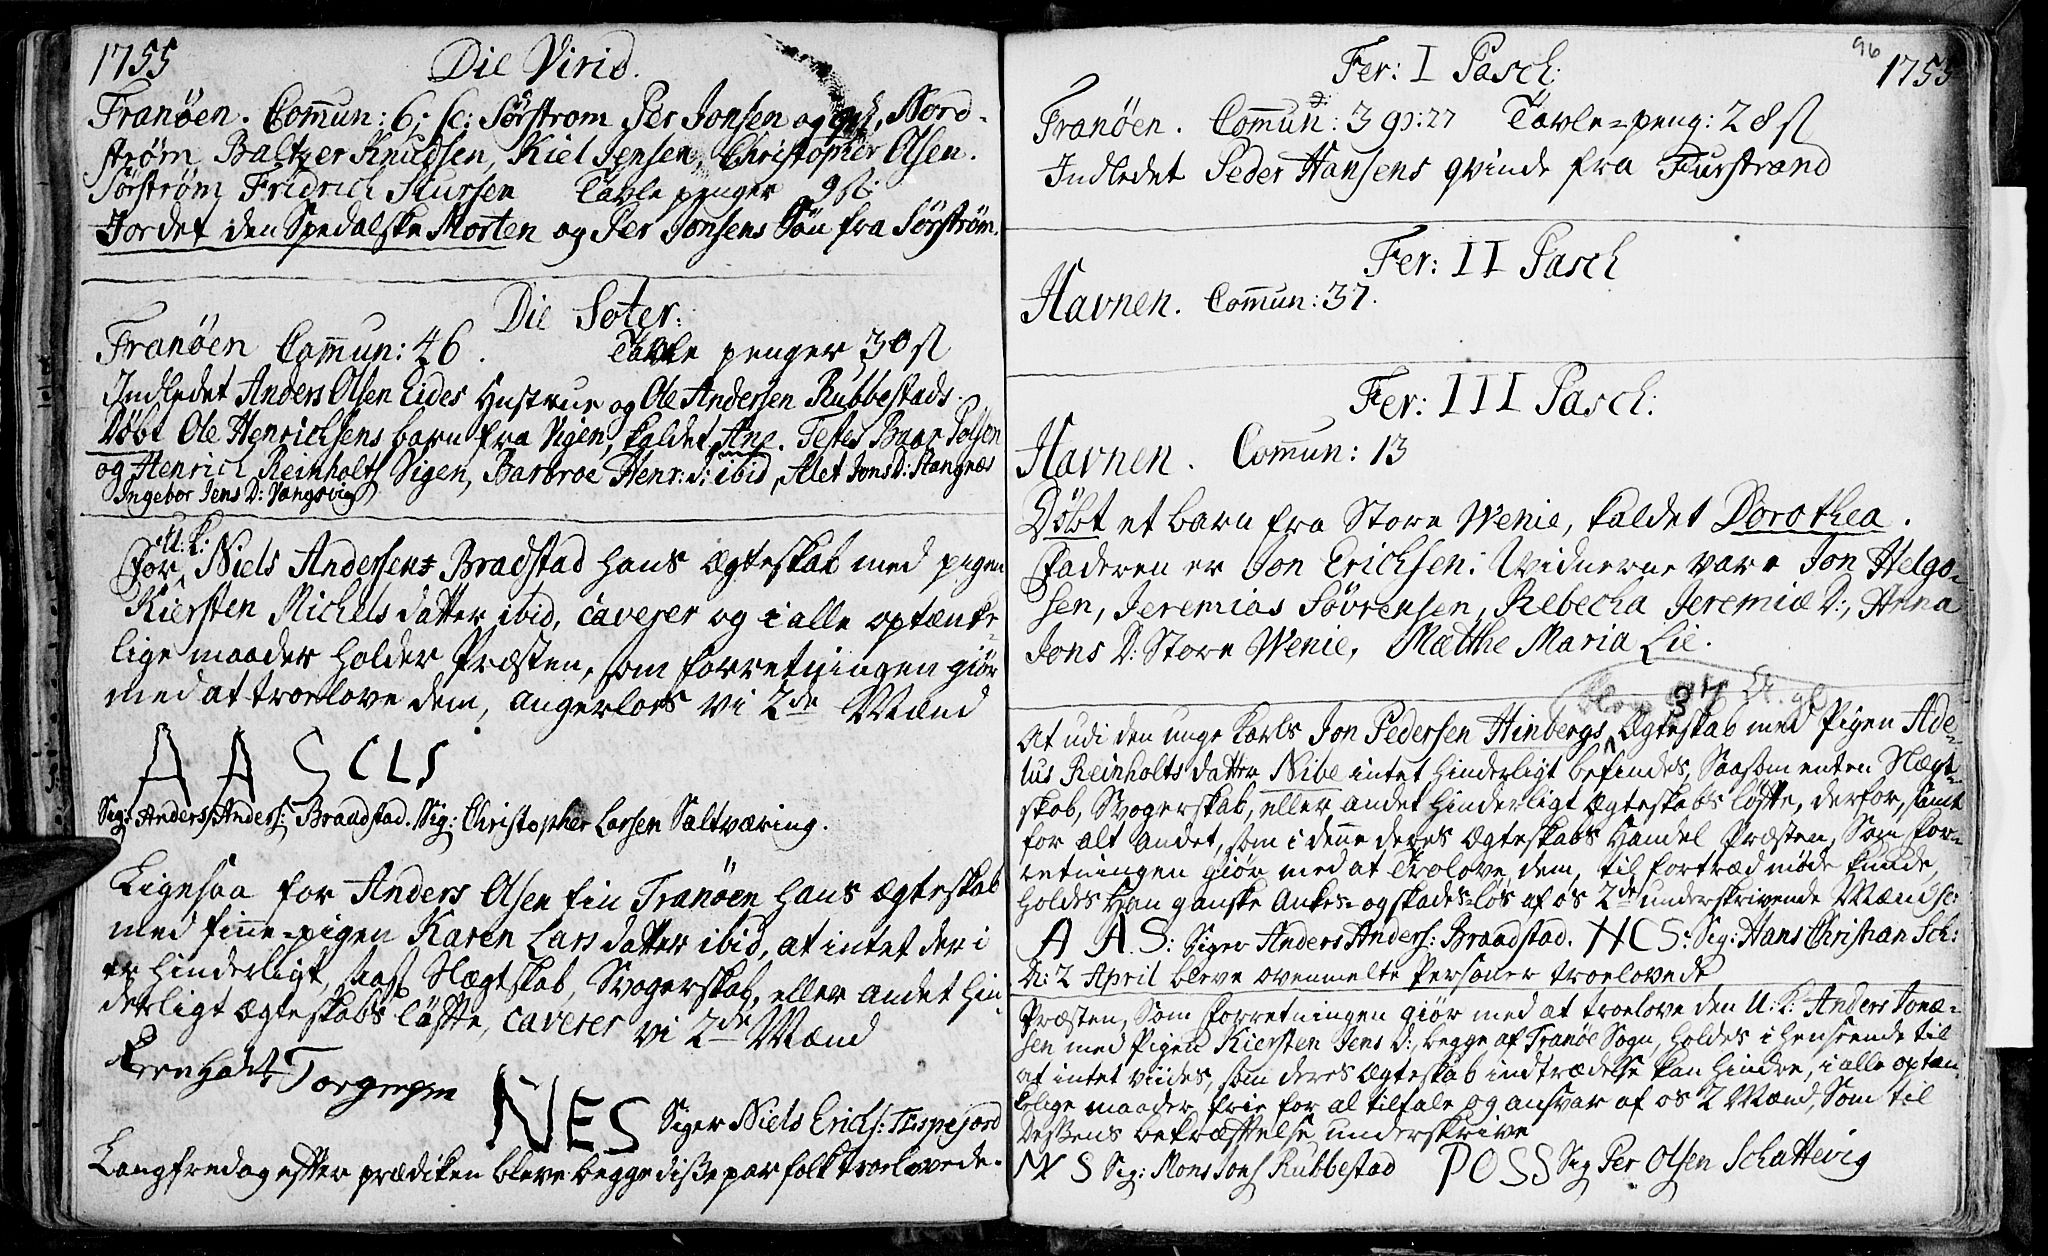 1755
Die Virid.
Tranöen. Comun: 6, sc: Sørstrøm Per Jonsen og Nord-
strøm Baltzer Knudsen, Kiel Jensen, Christopher Olsen.
Sørström Fridrich Siursen Tavle penger 9 sl:
Jordet den Spedalske Morten og Per Jonsens Søn fra Sørström.
Die Soter:
Tranöen Comun: 46. Tavle penger 30 sl
Indledet Anders Olsen Eides Hustrue og Ole Andersen Rubbestads.
Døbt Ole Henrichsens barn fra Vigen, kaldet Ane. Testes Baar Polsen
og Henrich Reinholts Vigen, Barbroe Henr: d: ibid, Alet Jons D: Stangnæs
Ingebor Jens D: Vangsvig
For U: K: Niels Andersens Bradstad hans ægteskab med pigen
Kiersten Michels datter ibid, caverer og i alle optænke-
lige maader holder Præsten, som forretningen giör
med at troelove dem, angerlös vi 2de Mænd
A A S C L S
Sig: Anders Anders: Braadstad. Sig: Christopher Larsen Saltværing.
Ligesaa for Anders Olsen fin Tranöen hans ægteskab
med finne-pigen Karen Lars datter ibid, at intet der i
er hinderligt, saas Slægtskab, Svogerskab, eller andet hin-
derligt ægteskabs löfte, caverer vi 2de Mænd
Torgersen
NES Siger Niels Erichs:
Langfredag efter prædiken bleve begge disse par folk troelovede.
96
1755
Fer: I Pasch:
Tranöen. Comun: 3 gr: 27 Tavle-peng: 28 sl
Indledet Peder Hansens qvinde fra Furstrand
Fer: II Pasch
Havnen. Comun: 37.
Fer: III Pasch:
Havnen. Comun: 13
Døbt et barn fra Store Wenie, kaldet Dorothea.
Faderen er Jon Erichsen: Vidnerne vare Jon Helge-
sen, Jeremias Sövrensen, Rebecha Jeremiæ D:, Anna
Jons D: Store Wenie, Mætthe Maria Lie.
37
At udi den unge Karls Jon Pedersen Hinbergs Ægteskab med Pigen Ade-
lus Reinholts datter Nibe intet hinderligt befindes, Saasom enten Slægt-
skab, Svogerskab, eller andet hinderligt Ægteskabs löfte, derfor, samt
for alt andet, som i denne deres Ægteskabs Handel Præsten, Som for-
retningen giör med at Trolove dem, til fortræd möde kunde,
holdes Han ganske Ankes- og skades-lös af os 2de underskrivende Mænd sc:
A A. S: Siger Anders Anders: Braadstad. H C S: Sig: Hans Christian Sch:
D: 2 April bleve ovenmelte Personer troelovede
Præsten, Som forretningen giör med at troelove den U: K: Anders Jonæ-
sen med Pigen Kiersten Jens D:, begge af Tranöe Sogn, holdes i henseende til
at intet viides, som deres Ægteskab indtrædelse kan hindre, i alle optæn-
kelige maader frie for al tiltale og ansvar af os 2 Mænd, Som til
Dessens bekræftelse underskrive
M S Sig: Mons Jons Rubbestad P O S S Sig Per Olsen Schattevig